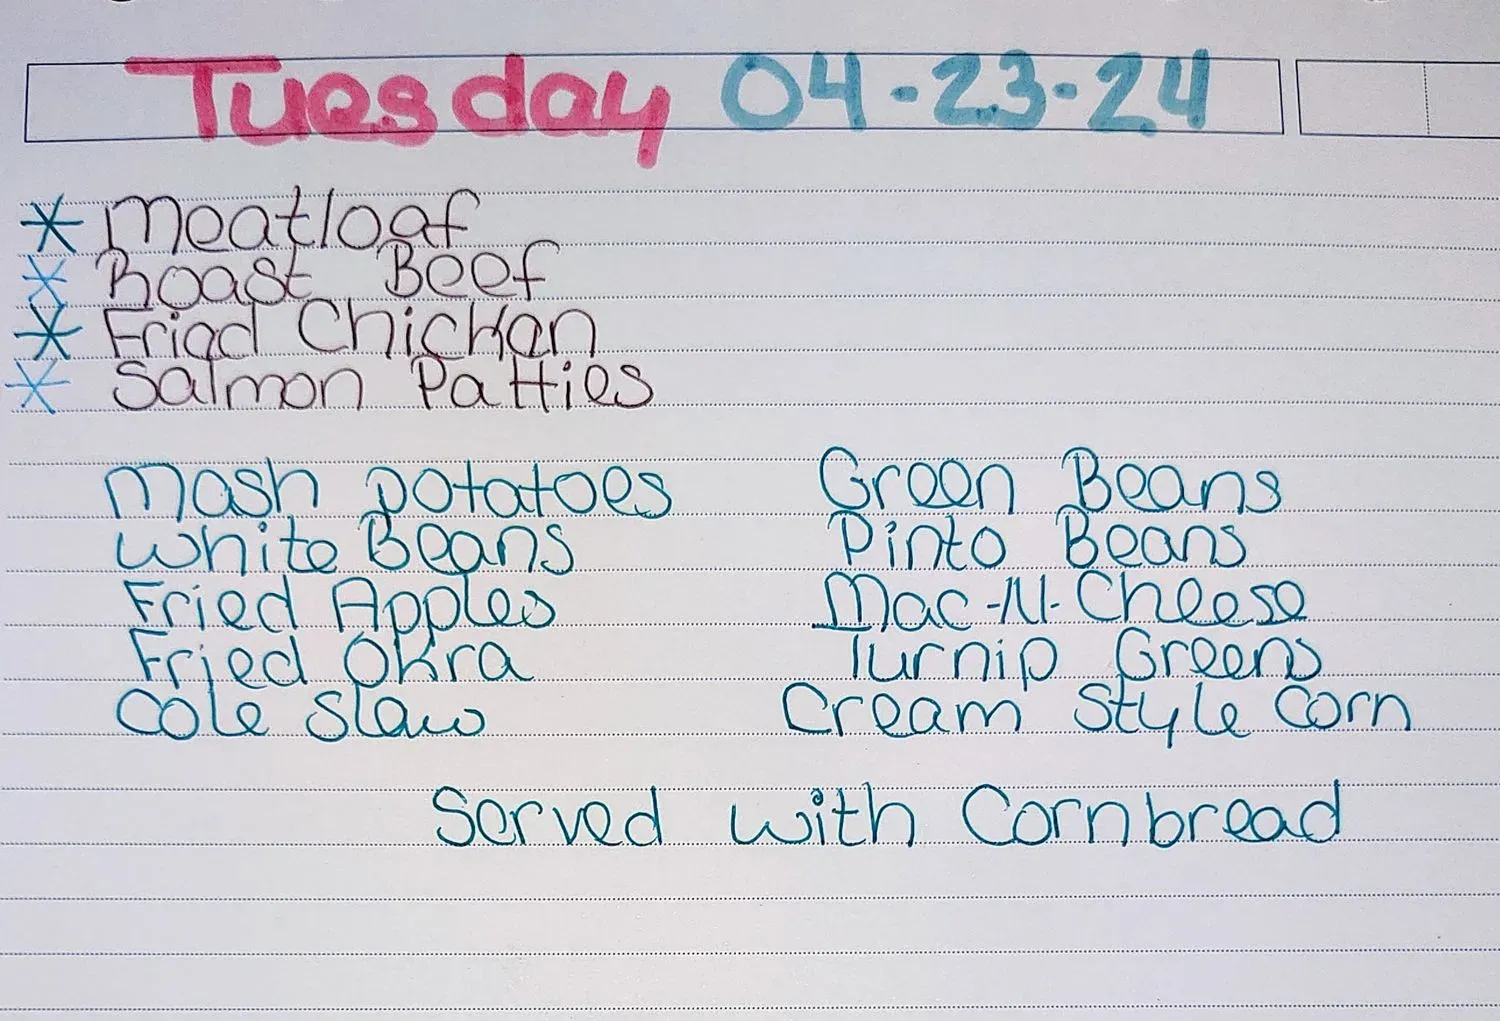 Tuesday 04-23-24
* Meatloaf
* Roast Beef
* Fried Chicken
* Salmon Patties
Mash potatoes Green Beans
White Beans Pinto Beans
Fried Apples Mac-N-Cheese
Fried Okra Turnip Greens
Cole Slaw Cream Style Corn
Served with Cornbread